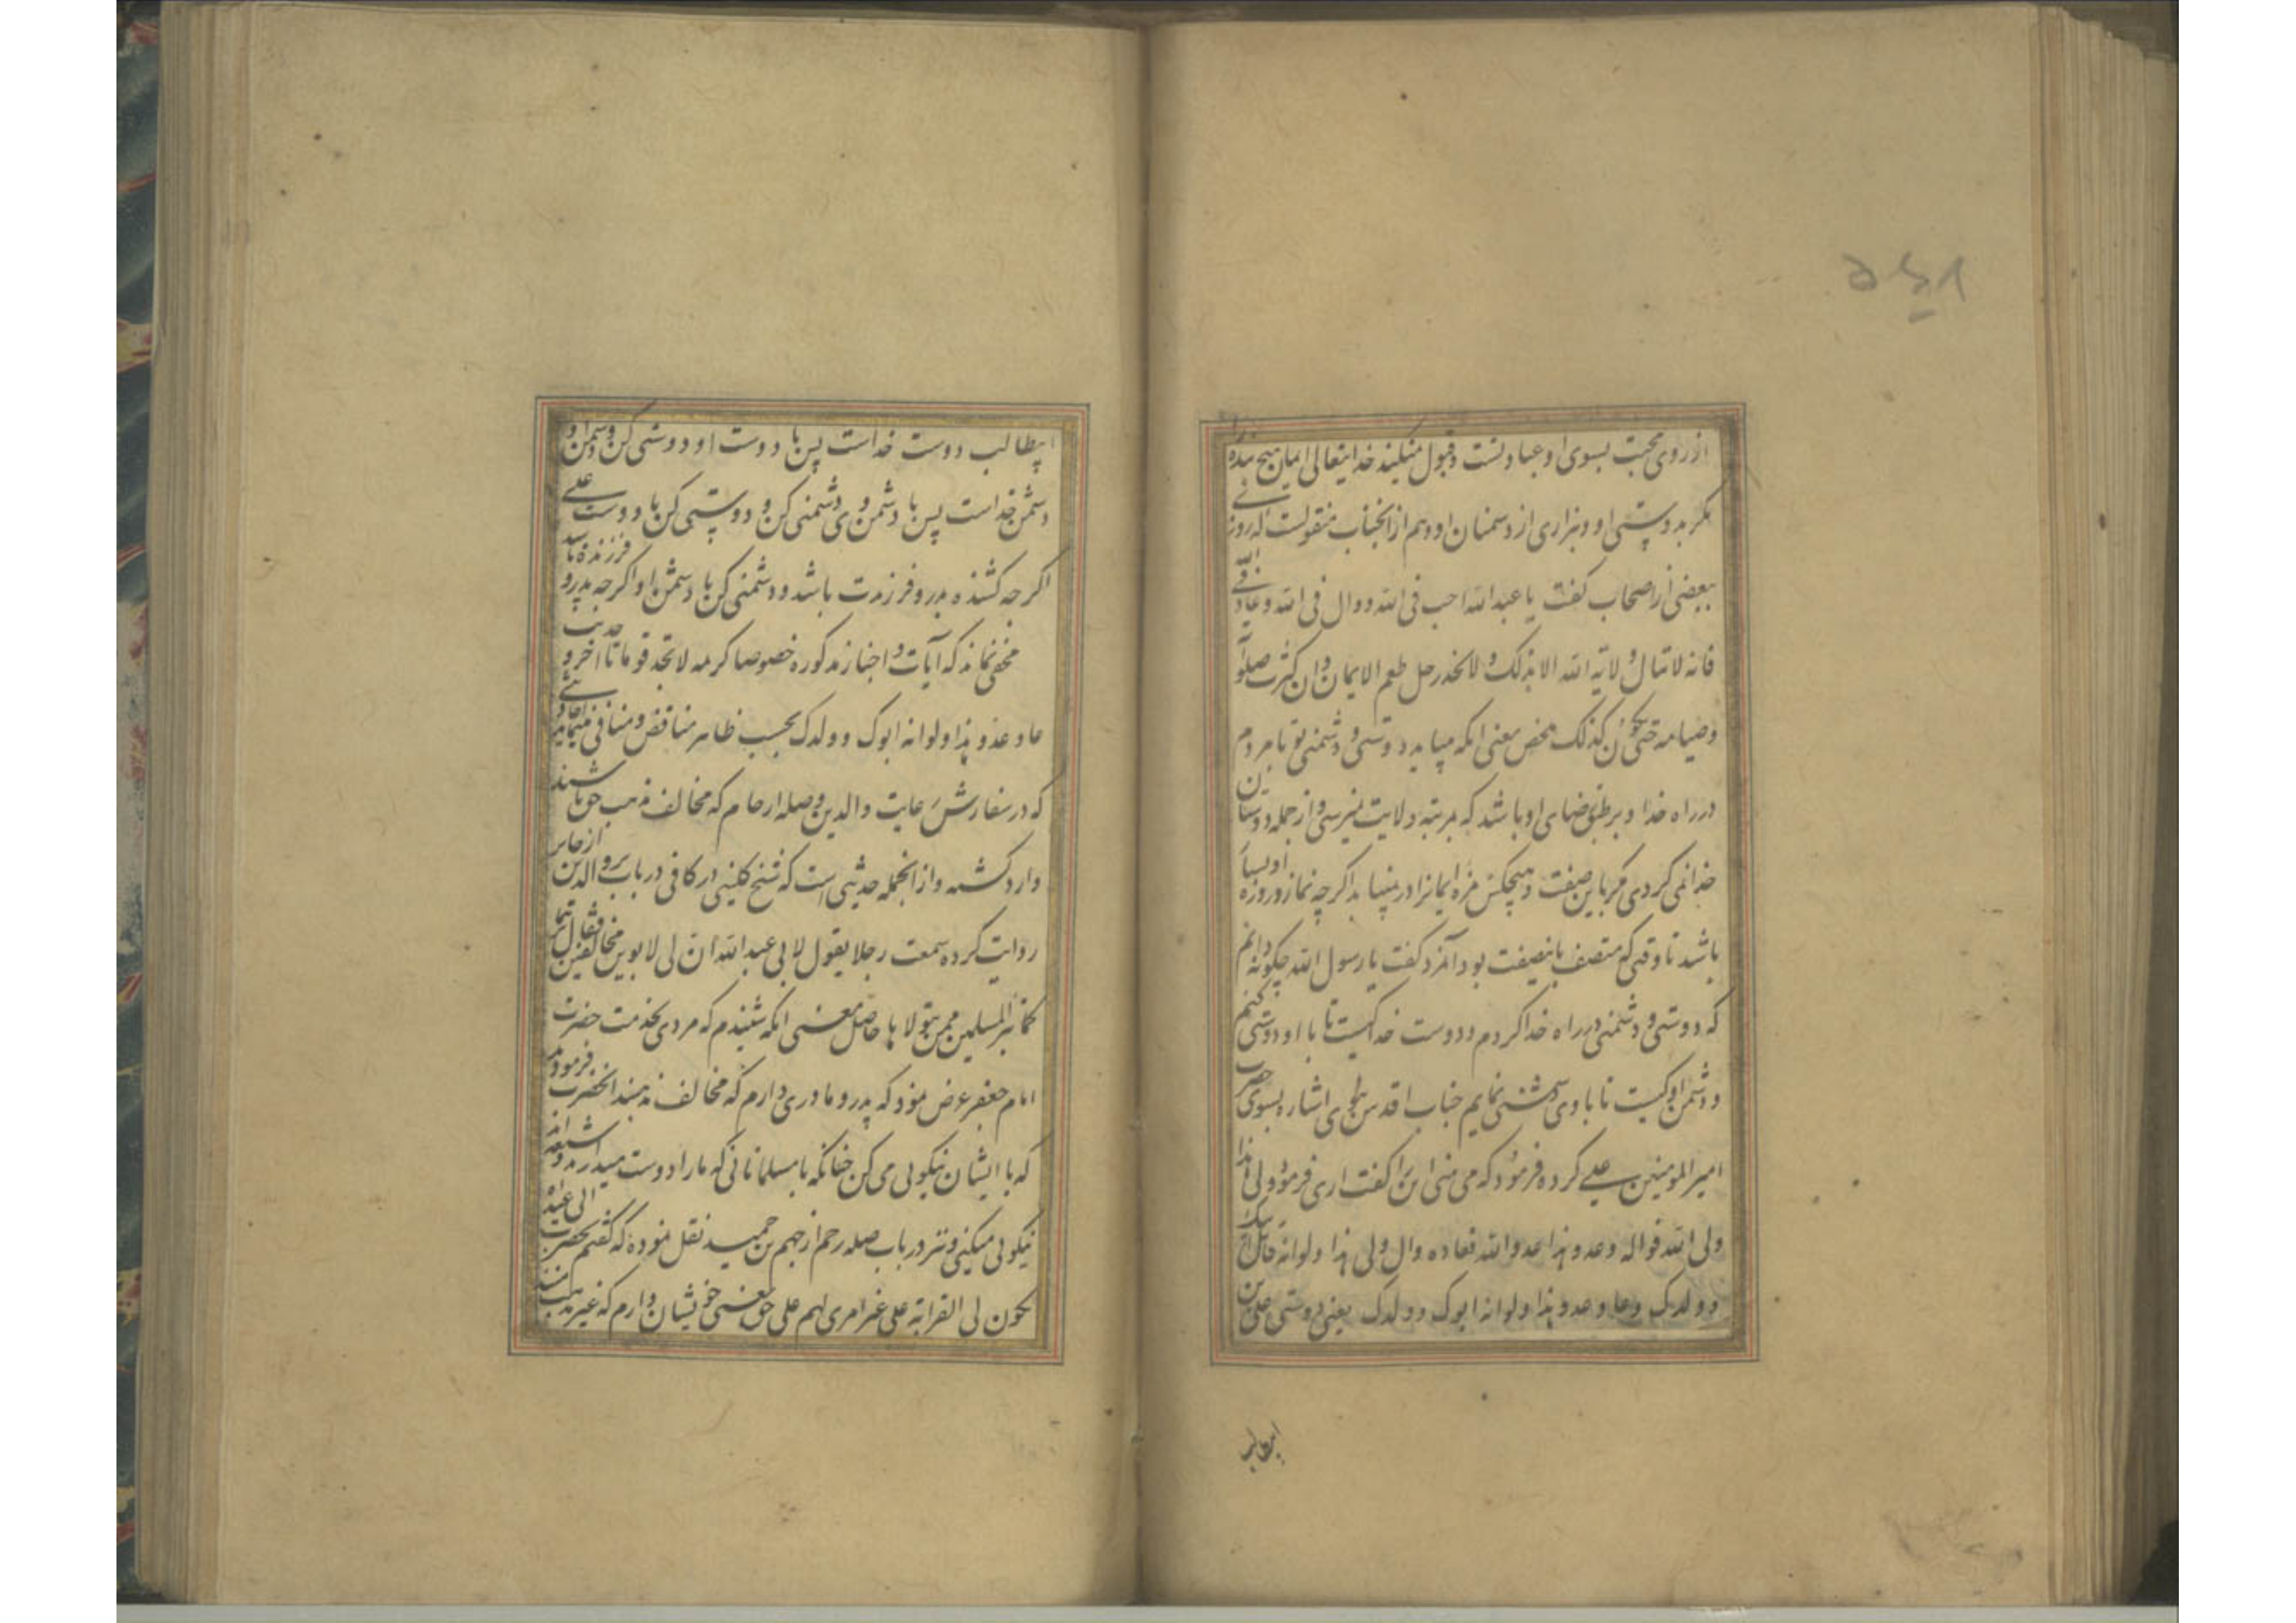 از روی محبت بسوی او عبادتست و قبول نمیکند خدایتعالی ایمان هیچ بنده را
مگر بدوستی او و بیزاری از دشمنان او و هم از انجناب منقولست که روزی
ببعضی از اصحاب گفت یا عبدالله احب فی الله و وال فی الله و عاد فی الله
فانه لا تنال ولایة الله الا بذلک و لا یجد رجل طعم الایمان و ان کثرت صلوته
و صیامه حتی یکون کذلک محض معنی انکه میباید دوستی و دشمنی تو با مردم
در راه خدا و بر طبق رضای او باشد که بمرتبه ولایت نمیرسی و از جمله دوستان
خدا نمی کردی مگر باین صفت و هیچکس مزه ایمانرا در نمییابد اگرچه نماز و روزه او بسیار
باشد تا وقتی که متصف باینصفت بود آنمرد گفت یا رسول الله چگونه دانم
که دوستی و دشمنی در راه خدا کردم و دوست خدا کیست تا با او دوستی کنم
و دشمن او کیست تا با وی دشمنی نمایم جناب اقدس نبوی اشاره بسوی حضرت
امیر المومنین علی کرده فرمود که می بینی این را گفت اری فرمود ولی هذا
ولی الله فواله و عدو هذا عدو الله فعاده وال ولی هذا و لو انه قاتل ابیک
و ولدک و عاد عدو هذا و لو انه ابوک و ولدک یعنی دوستی علی بن
ابیطالب
ابیطالب دوست خداست پس با دوست او دوستی کن و دشمن او
دشمن خداست پس با دشمن وی دشمنی کن و دوستی کن با دوست علی
اگر چه کشنده پدر و فرزندت باشد و دشمنی کن با دشمن او اگر چه پدر و فرزنده باشد
مخفی نماند که آیات و اخبار مذکوره خصوصا کریمه لا تجد قوما تا اخر و حدیث
عاد عدو هذا و لو انه ابوک و ولدک بحسب ظاهر مناقض و منافی مینماید
که در سفارش رعایت والدین و صله ارحام که مخالف مذهب حق باشند
وارد گشته و از انجمله حدیثی است که شیخ کلینی در کافی در باب بر والدین از جابر
روایت کرده سمعت رجلا یقول لابی عبدالله ان لی لابوین مخالفین فقال
کما تبر المسلمین ممن یتولانا حاصل معنی انکه شنیدم که مردی بخدمت حضرت
امام جعفر عرض نمود که پدر و مادری دارم که مخالف مذهبند انحضرت فرمود
که با ایشان نیکوئی می کن چنانکه با مسلمانانی که ما را دوست میدارند و شیعه اند
نیکوئی میکنی و نیز در باب صله رحم از جهم بن حمید نقل نموده که گفتم بحضرت ابی عبدالله
یکون لی القرابة علی غیر امری لهم علی حق یعنی خویشان دارم که غیر مذهب منند